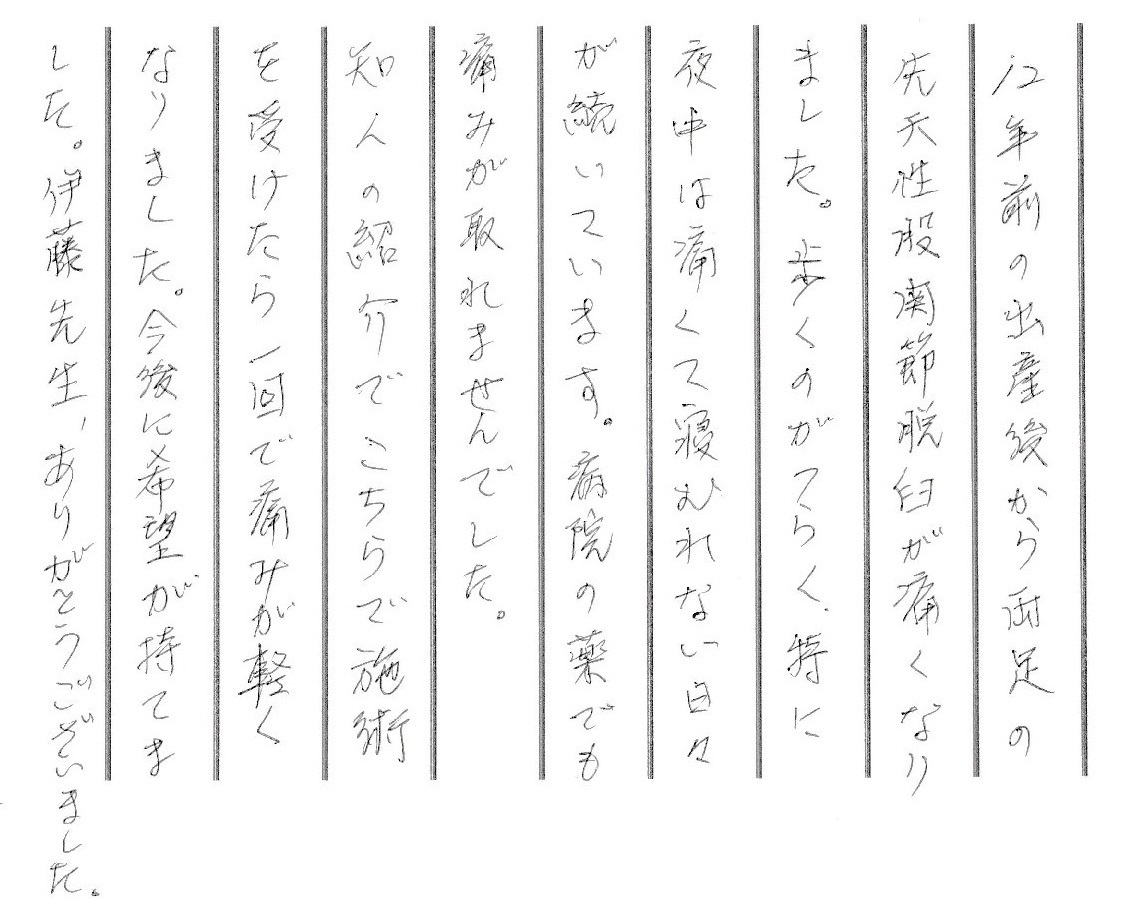 12年前の出産後から両足の
先天性股関節脱臼が痛くなり
ました。歩くのがつらく、特に
夜中は痛くて寝むれない日々
が続いています。病院の薬でも
痛みが取れませんでした。
知人の紹介でこちらで施術
を受けたら一回で痛みが軽く
なりました。今後に希望が持てま
した。伊藤先生、ありがとうございました。